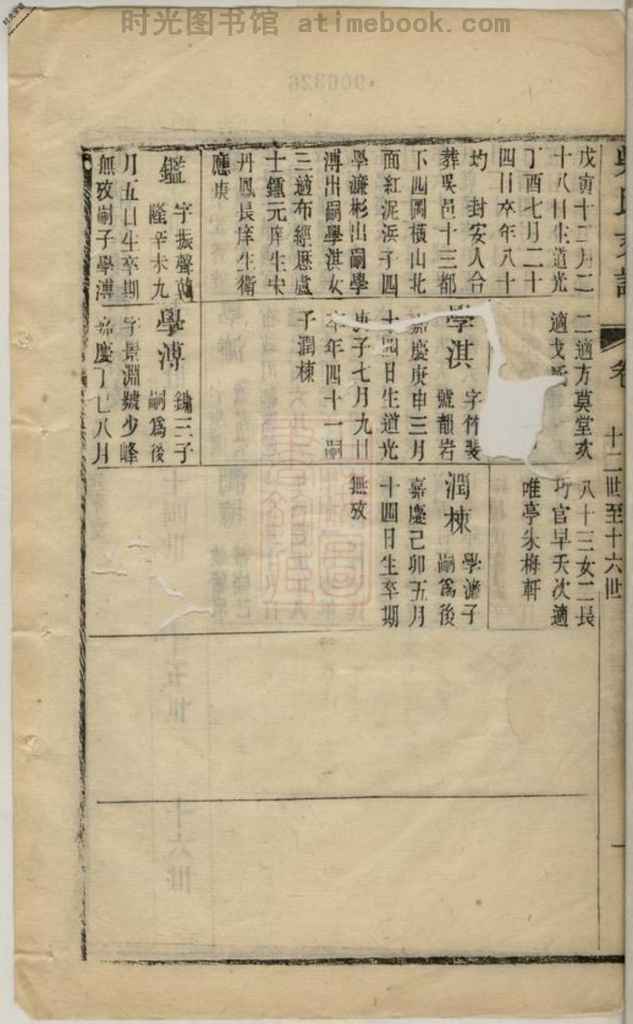 时光图书馆 atimebook.com
吳氏支譜
卷
十二世至十六世
戊寅十二月二
十八日生道光
丁酉七月二十
四日卒年八十
均 封安人合
葬吳邑十三都
下四圖橫山北
面紅泥浜子四
學濂彬出嗣學
溥出嗣學淇女
三適布經歷盧
士鍾元庠生宋
丹鳳長庠生衛
應庚
鑑 字振聲乾
隆辛未九
月五日生卒期
無攷嗣子學溥
二適方莫堂次
適戈
學淇 字竹裴
號韻岩
嘉慶庚申三月
十四日生道光
庚子七月九日
卒年四十一嗣
子潤棟
學溥 鏞三子
嗣爲後
字景淵號少峰
嘉慶丁巳八月
八十三女二長
巧官早夭次適
唯亭朱梅軒
潤棟 學濂子
嗣爲後
嘉慶己卯五月
十四日生卒期
無攷